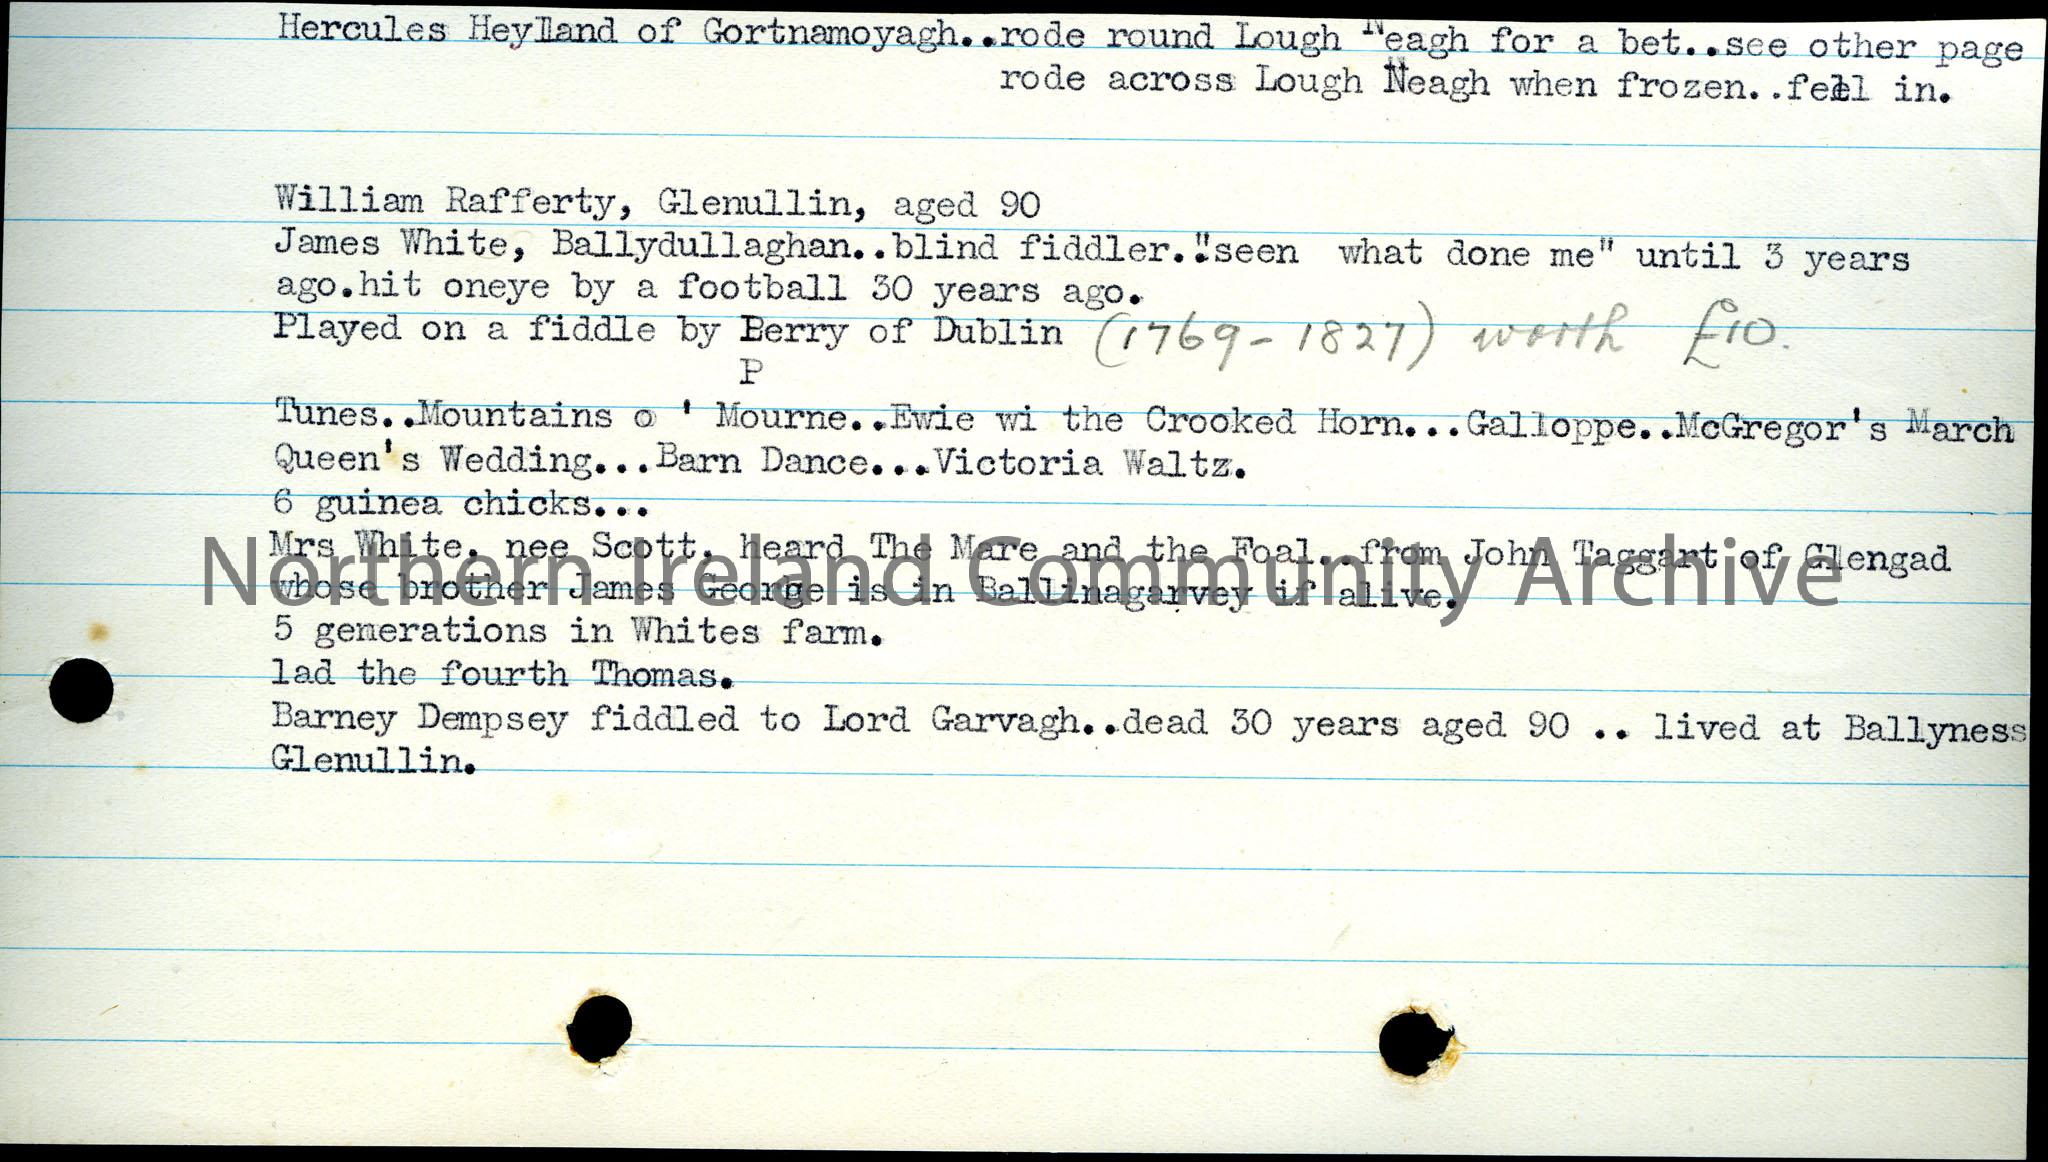 Hercules Heylland of Gortnamoyagh..rode round Lough Neagh for a bet..see other page
rode across Lough Neagh when frozen..fell in.
William Rafferty, Glenullin, aged 90
James White, Ballydullaghan..blind fiddler.."seen what done me" until 3 years
ago.hit oneye by a football 30 years ago.
Played on a fiddle by Berry of Dublin (1769-1827) worth £10.
P
Tunes..Mountains o ' Mourne..Ewie wi the Crooked Horn...Galloppe..McGregor's March
Queen's Wedding...Barn Dance...Victoria Waltz.
6 guinea chicks...
Mrs White, nee Scott, heard The Mare and the Foal..from John Taggart of Glengad
whose brother James George is in Ballinagarvey if alive.
Northern Ireland Community Archive
5 generations in Whites farm.
lad the fourth Thomas.
Barney Dempsey fiddled to Lord Garvagh..dead 30 years aged 90 .. lived at Ballyness
Glenullin.